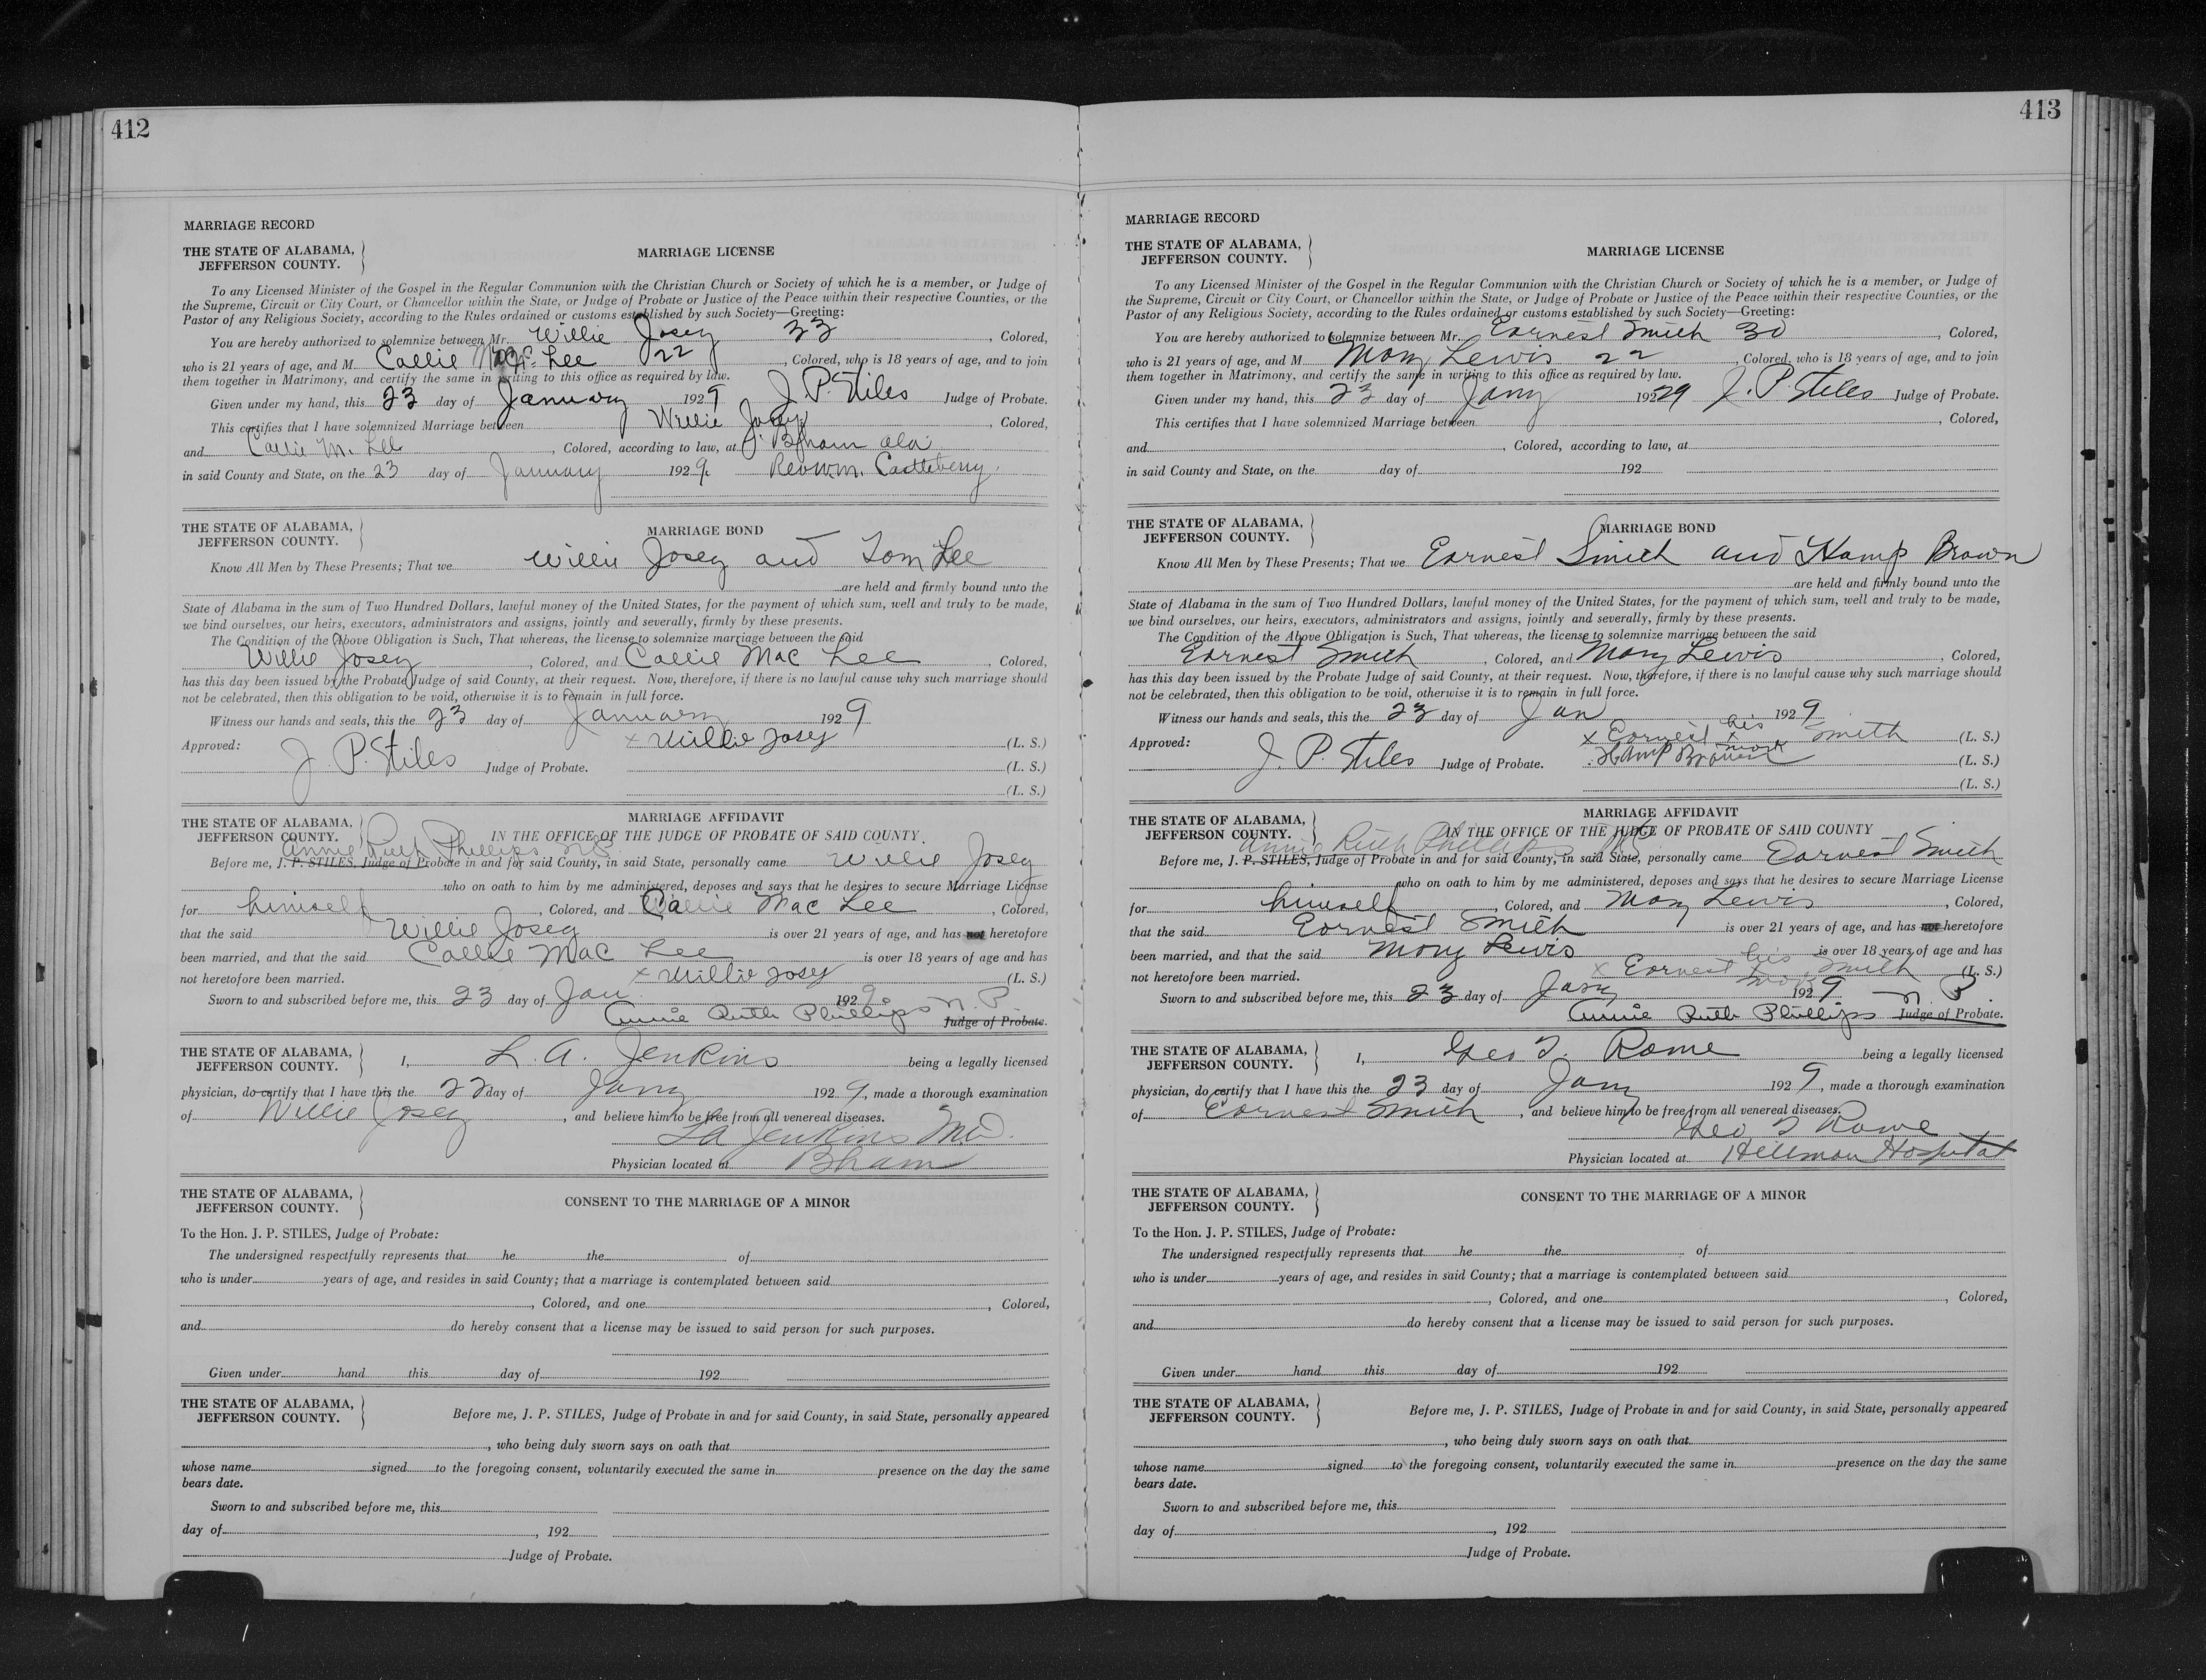 412
MARRIAGE RECORD
THE STATE OF ALABAMA,
JEFFERSON COUNTY.
MARRIAGE LICENSE
To any Licensed Minister of the Gospel in the Regular Communion with the Christian Church or Society of which he is a member, or Judge of
the Supreme, Circuit or City Court, or Chancellor within the State, or Judge of Probate or Justice of the Peace within their respective Counties, or the
Pastor of any Religious Society, according to the Rules ordained or customs established by such Society—Greeting:
You are hereby authorized to solemnize between Mr. Willie Josey 23, Colored,
who is 21 years of age, and M Callie Mac Lee 22, Colored, who is 18 years of age, and to join
them together in Matrimony, and certify the same in writing to this office as required by law.
Given under my hand, this 23 day of January 1929 J. P. Stiles Judge of Probate.
This certifies that I have solemnized Marriage between Willie Josey, Colored,
and Callie M. Lee, Colored, according to law, at Bham Ala
in said County and State, on the 23 day of January 1929. Rev Wm. Castleberry.
THE STATE OF ALABAMA,
JEFFERSON COUNTY.
MARRIAGE BOND
Know All Men by These Presents; That we Willie Josey and Tom Lee
are held and firmly bound unto the
State of Alabama in the sum of Two Hundred Dollars, lawful money of the United States, for the payment of which sum, well and truly to be made,
we bind ourselves, our heirs, executors, administrators and assigns, jointly and severally, firmly by these presents.
The Condition of the Above Obligation is Such, That whereas, the license to solemnize marriage between the said
Willie Josey, Colored, and Callie Mac Lee, Colored,
has this day been issued by the Probate Judge of said County, at their request. Now, therefore, if there is no lawful cause why such marriage should
not be celebrated, then this obligation to be void, otherwise it is to remain in full force.
Witness our hands and seals, this the 23 day of January 1929
Approved: x Willie Josey (L. S.)
J. P. Stiles Judge of Probate. (L. S.)
(L. S.)
THE STATE OF ALABAMA,
JEFFERSON COUNTY.
MARRIAGE AFFIDAVIT
IN THE OFFICE OF THE JUDGE OF PROBATE OF SAID COUNTY
Annie Ruth Phillips N.P.
Before me, J. P. STILES, Judge of Probate in and for said County, in said State, personally came Willie Josey
who on oath to him by me administered, deposes and says that he desires to secure Marriage License
for himself, Colored, and Callie Mac Lee, Colored,
that the said Willie Josey is over 21 years of age, and has not heretofore
been married, and that the said Callie Mac Lee is over 18 years of age and has
not heretofore been married. x Willie Josey (L. S.)
Sworn to and subscribed before me, this 23 day of Jan 1929 N.P.
Annie Ruth Phillips Judge of Probate.
THE STATE OF ALABAMA,
JEFFERSON COUNTY.
I, L. A. Jenkins being a legally licensed
physician, do certify that I have this the 22 day of Jany 1929, made a thorough examination
of Willie Josey, and believe him to be free from all venereal diseases.
LA Jenkins MD.
Physician located at Bham
THE STATE OF ALABAMA,
JEFFERSON COUNTY.
CONSENT TO THE MARRIAGE OF A MINOR
To the Hon. J. P. STILES, Judge of Probate:
The undersigned respectfully represents that he the of
who is under years of age, and resides in said County; that a marriage is contemplated between said
, Colored, and one , Colored,
and do hereby consent that a license may be issued to said person for such purposes.
Given under hand this day of 192
THE STATE OF ALABAMA,
JEFFERSON COUNTY.
Before me, J. P. STILES, Judge of Probate in and for said County, in said State, personally appeared
, who being duly sworn says on oath that
whose name signed to the foregoing consent, voluntarily executed the same in presence on the day the same
bears date.
Sworn to and subscribed before me, this
day of , 192
Judge of Probate.
413
MARRIAGE RECORD
THE STATE OF ALABAMA,
JEFFERSON COUNTY.
MARRIAGE LICENSE
To any Licensed Minister of the Gospel in the Regular Communion with the Christian Church or Society of which he is a member, or Judge of
the Supreme, Circuit or City Court, or Chancellor within the State, or Judge of Probate or Justice of the Peace within their respective Counties, or the
Pastor of any Religious Society, according to the Rules ordained or customs established by such Society—Greeting:
You are hereby authorized to solemnize between Mr. Earnest Smith 30, Colored,
who is 21 years of age, and M Mary Lewis 22, Colored, who is 18 years of age, and to join
them together in Matrimony, and certify the same in writing to this office as required by law.
Given under my hand, this 23 day of Jany 19229 J. P. Stiles Judge of Probate.
This certifies that I have solemnized Marriage between , Colored,
and , Colored, according to law, at
in said County and State, on the day of 192
THE STATE OF ALABAMA,
JEFFERSON COUNTY.
MARRIAGE BOND
Know All Men by These Presents; That we Earnest Smith and Hamp Brown
are held and firmly bound unto the
State of Alabama in the sum of Two Hundred Dollars, lawful money of the United States, for the payment of which sum, well and truly to be made,
we bind ourselves, our heirs, executors, administrators and assigns, jointly and severally, firmly by these presents.
The Condition of the Above Obligation is Such, That whereas, the license to solemnize marriage between the said
Earnest Smith, Colored, and Mary Lewis, Colored,
has this day been issued by the Probate Judge of said County, at their request. Now, therefore, if there is no lawful cause why such marriage should
not be celebrated, then this obligation to be void, otherwise it is to remain in full force.
Witness our hands and seals, this the 23 day of Jan 1929
Approved: x Earnest his x mark Smith (L. S.)
J. P. Stiles Judge of Probate. Hamp Brown (L. S.)
(L. S.)
THE STATE OF ALABAMA,
JEFFERSON COUNTY.
MARRIAGE AFFIDAVIT
IN THE OFFICE OF THE JUDGE OF PROBATE OF SAID COUNTY
Annie Ruth Phillips N.P.
Before me, J. P. STILES, Judge of Probate in and for said County, in said State, personally came Earnest Smith
who on oath to him by me administered, deposes and says that he desires to secure Marriage License
for himself, Colored, and Mary Lewis, Colored,
that the said Earnest Smith is over 21 years of age, and has not heretofore
been married, and that the said Mary Lewis is over 18 years of age and has
not heretofore been married. x Earnest his x mark Smith (L. S.)
Sworn to and subscribed before me, this 23 day of Jany 1929 N P
Annie Ruth Phillips Judge of Probate.
THE STATE OF ALABAMA,
JEFFERSON COUNTY.
I, Geo T. Rowe being a legally licensed
physician, do certify that I have this the 23 day of Jany 1929, made a thorough examination
of Earnest Smith, and believe him to be free from all venereal diseases.
Geo T Rowe
Physician located at Hillman Hospital
THE STATE OF ALABAMA,
JEFFERSON COUNTY.
CONSENT TO THE MARRIAGE OF A MINOR
To the Hon. J. P. STILES, Judge of Probate:
The undersigned respectfully represents that he the of
who is under years of age, and resides in said County; that a marriage is contemplated between said
, Colored, and one , Colored,
and do hereby consent that a license may be issued to said person for such purposes.
Given under hand this day of 192
THE STATE OF ALABAMA,
JEFFERSON COUNTY.
Before me, J. P. STILES, Judge of Probate in and for said County, in said State, personally appeared
, who being duly sworn says on oath that
whose name signed to the foregoing consent, voluntarily executed the same in presence on the day the same
bears date.
Sworn to and subscribed before me, this
day of , 192
Judge of Probate.